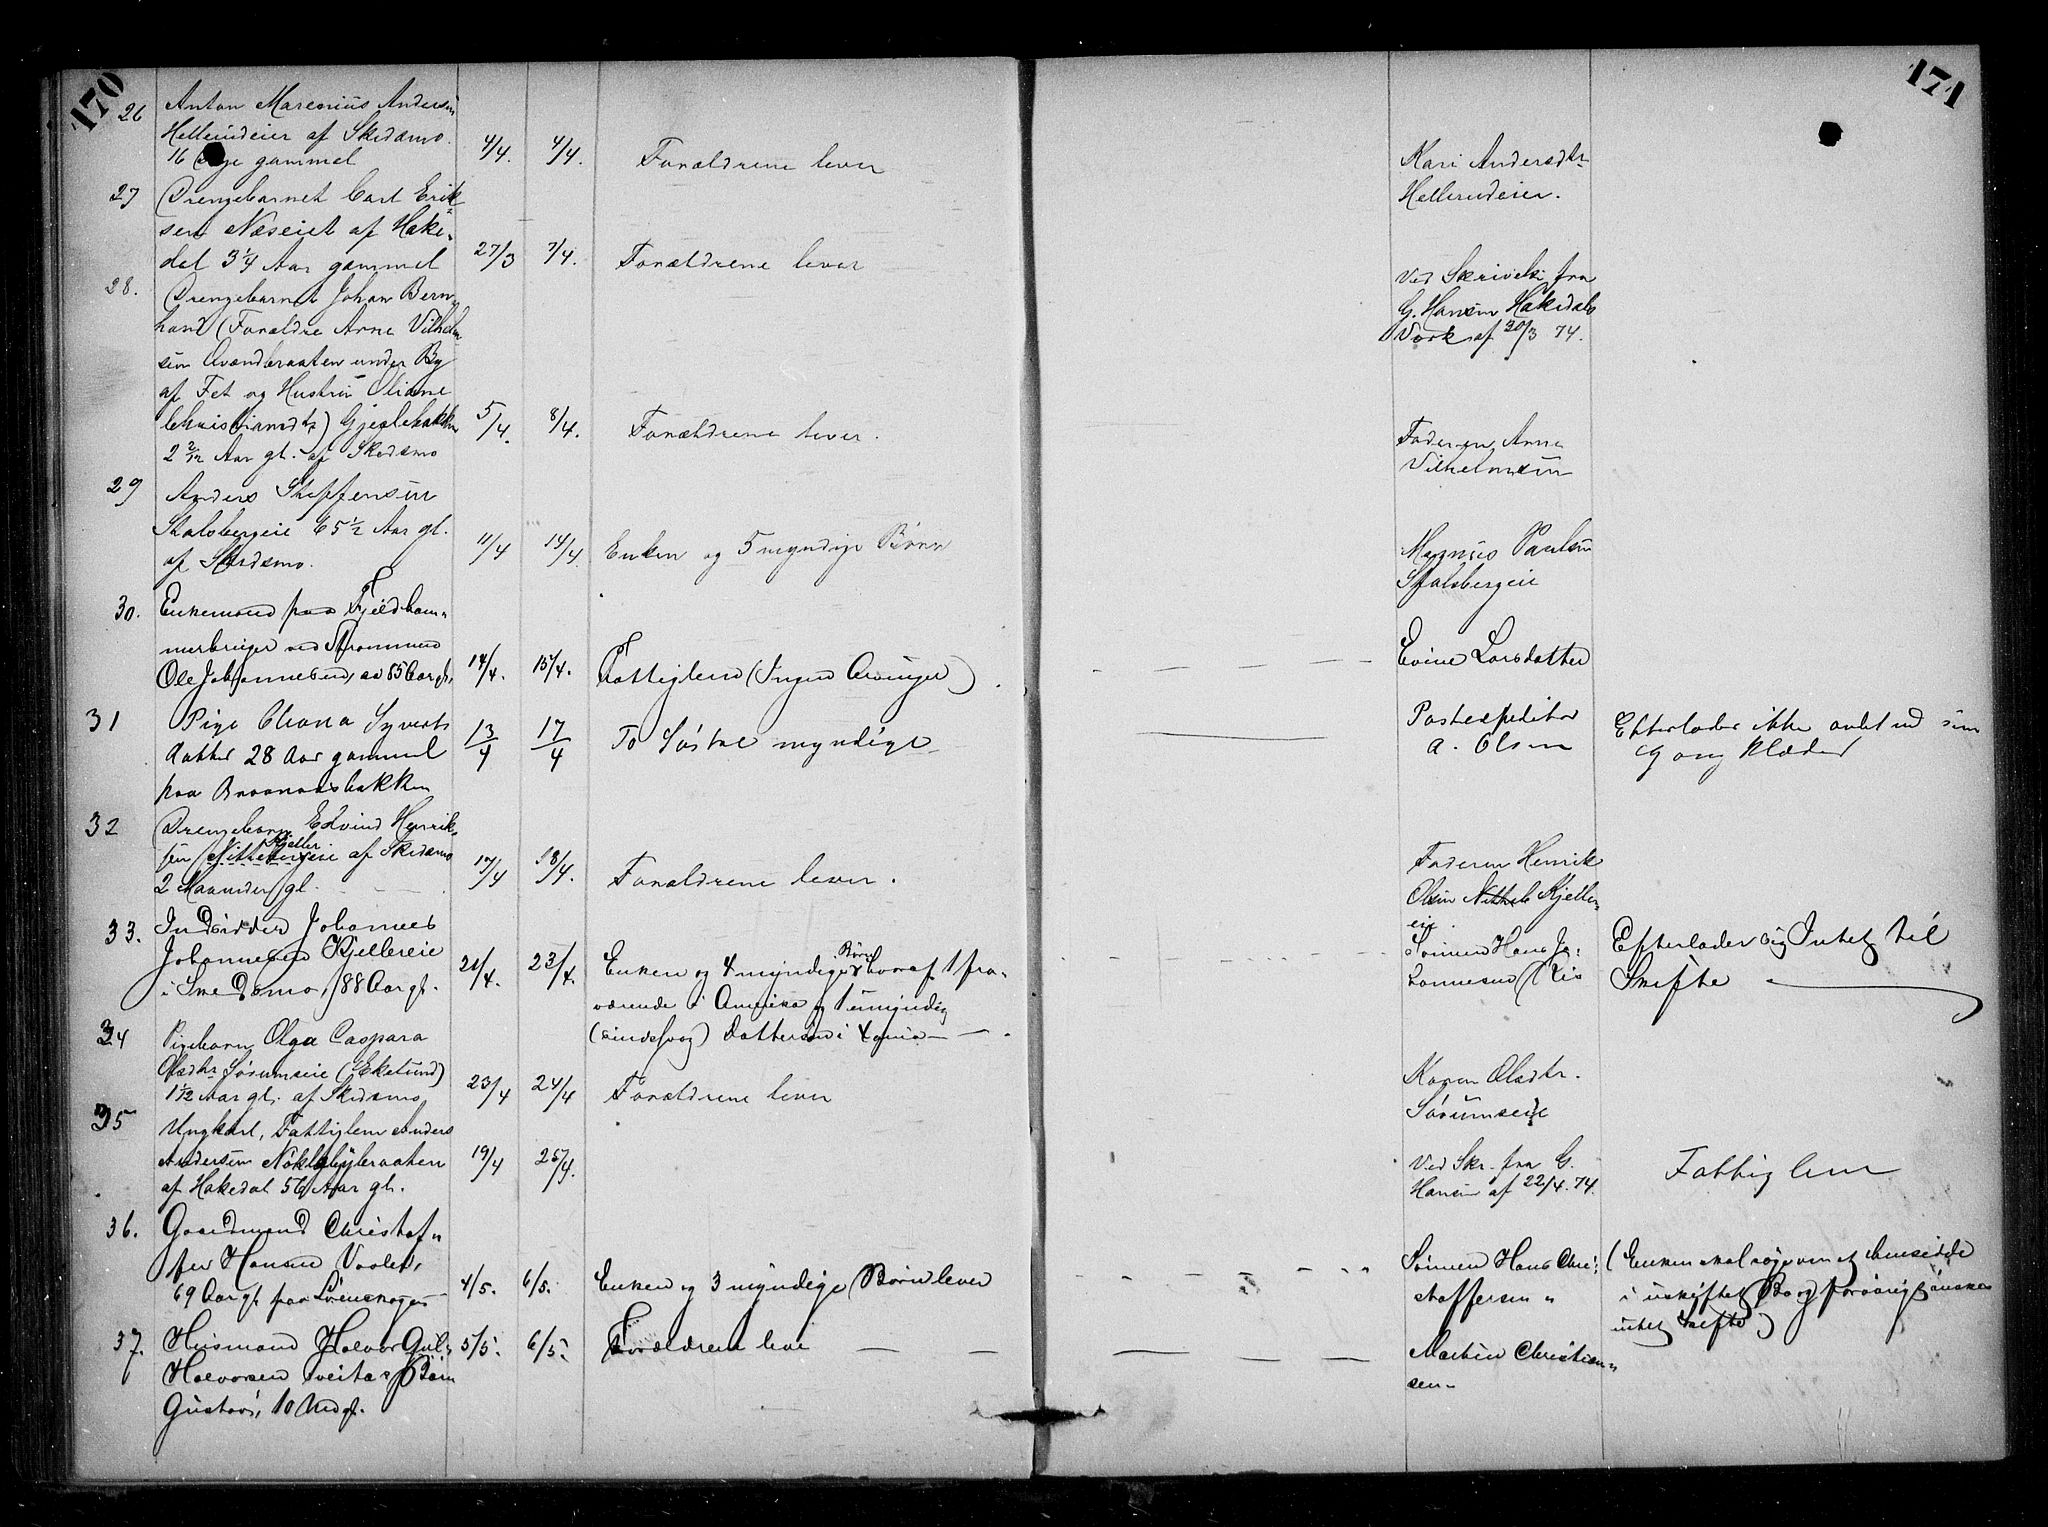 170
171
26
Anton Marenius Andersen
Hellerudeier af Skedsmo.
16 Dage gammel
4/4.
4/4.
Forældrene lever
Kari Andersdtr
Hellerudeier.
27
Drengebarnet Carl Erik-
sen Næseiet af Hake-
dal 3 1/4 Aar gammel
27/3
7/4.
Forældrene lever
Ved Skrivelse fra
G. Hansen Hakedals
Værk af 30/3 74.
28.
Drengebarnet Johan Bern-
hard (Forældre Arne Vilhelm-
sen under By
af Fet og Hustru Oliane
Christiansdtr)
2 2/12 Aar gl. af Skedsmo
5/4.
8/4.
Forældrene lever.
Faderen Arne
Vilhelmsen
29
Anders Steffensen
Stalsbergeie 65 1/2 Aar gl.
af Skedsmo.
11/4
14/4.
Enken og 5 myndige Børn
Magnus Paulsen
Stalsbergeie
30.
Enkemand paa Fjeldham-
merbruget ved Strømmen
Ole Johannesen, 85 Aar gl.
14/4.
15/4.
Fattiglem (Ingen Arvinger)
Evine Larsdatter
31
Pige Syverts
datter 28 Aar gammel
paa Braanaasbakken
13/4
17/4
To Søstre myndige
Postexpeditør
A. Olsen
Efterlader ikke andet end sine
Gang Klæder
32
Drengebarn Edvind Henrik-
sen Kjeller eie af Skedsmo
2 Maaneder gl.
17/4
18/4.
Forældrene lever.
Faderen Henrik
Olsen Kjeller-
eie.
33.
Indsidder Johannes
Johannesen Kjellereie
i Skedsmo, 88 Aar gl.
21/4.
23/4.
Enken og 4 myndige Børn hvoraf 1 fra-
værende i Amerika og 1 umyndig
(sindssvag) Datter
Sønnen Hans Jo-
hannesen Riis
Efterlader sig Intet til
Skifte
34
Pigebarn Olga Caspara
Olsdtr Sørumseie (Ekelund)
1 1/12 Aar gl. af Skedsmo
23/4
24/4
Forældrene lever
Karen Olsdtr.
Sørumseie
35
Ungkarl, Fattiglem Anders
Andersen Nøklebybraaten
af Hakedal 56 Aar gl.
19/4
25/4.
Ved Skr. fra G.
Hansen af 22/4. 74.
Fattiglem
36.
Gaardmand Christof-
fer Hansen
69 Aar gl. paa Lørenskogen
4/5.
6/5.
Enken og 3 myndige Børn lever
Sønnen Hans Chri-
stoffersen
(Enken skal søge om at hensidde
i uskiftet Bo og forøvrigt ønskes
intet Skifte
37.
Husmand Halvor Gul-
Halvorsen Tveitas Barn
Gustav, 10 Md gl.
5/5.
6/5.
Forældrene leve
Martin Christian-
sen